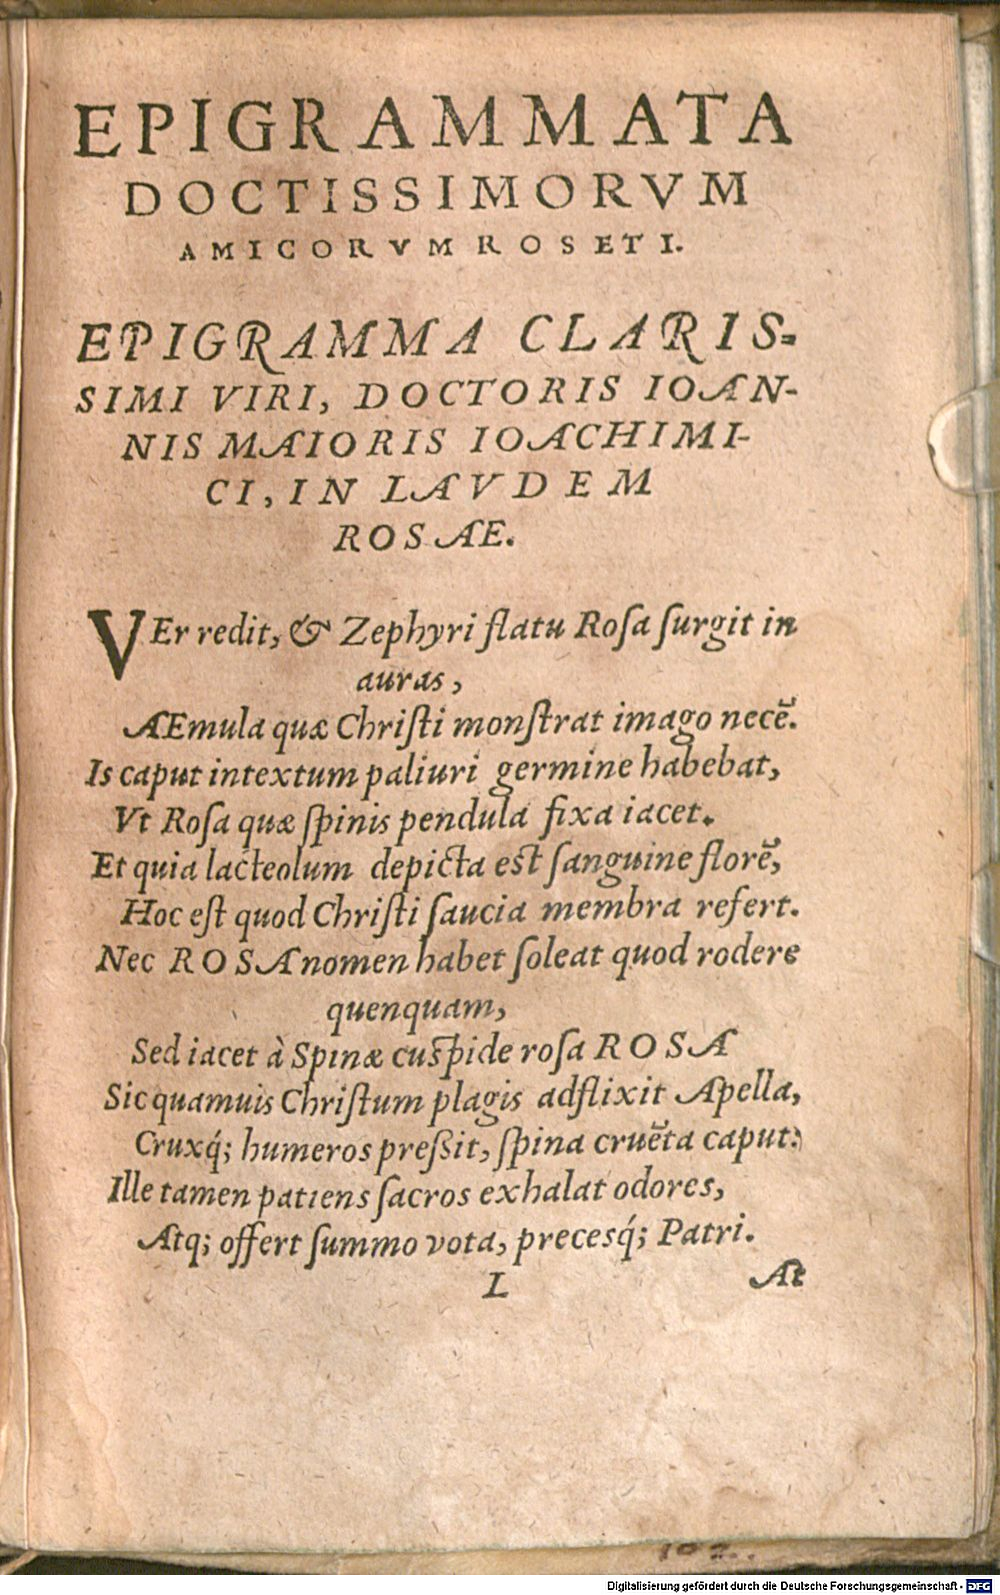 EPIGRAMMATA
DOCTISSIMORVM
AMICORVM ROSETI.
EPIGRAMMA CLARIS-
SIMI VIRI, DOCTORIS IOAN-
NIS MAIORIS IOACHIMI-
CI, IN LAVDEM
ROSAE.
VEr redit, & Zephyri flatu Roſa ſurgit in
auras,
AEmula quæ Chriſti monſtrat imago necē.
Is caput intextum paliuri germine habebat,
Vt Roſa quæ ſpinis pendula fixa iacet.
Et quia lacteolum depicta eſt ſanguine florē,
Hoc eſt quod Chriſti ſaucia membra refert.
Nec ROSA nomen habet ſoleat quod rodere
quenquam,
Sed iacet à Spinæ cuſpide roſa ROSA
Sic quamuis Chriſtum plagis adflixit Apella,
Cruxq́; humeros preſsit, ſpina cruēta caput:
Ille tamen patiens ſacros exhalat odores,
Atq; offert ſummo vota, precesq́; Patri.
L At
102.
Digitalisierung gefördert durch die Deutsche Forschungsgemeinschaft - DFG